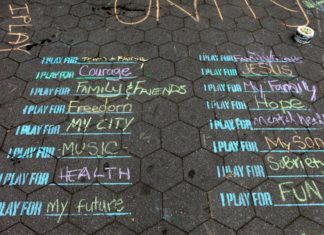 UNITY
I PLAY
I PLAY FOR
I PLAY FOR Courage
I PLAY FOR FAMILY & FRIENDS
I PLAY FOR Freedom
I PLAY FOR MY CITY
I PLAY FOR MUSIC
I PLAY FOR HEALTH
I PLAY FOR My future
I PLAY FOR
I PLAY FOR JESUS
I PLAY FOR My Family
I PLAY FOR Hope
I PLAY FOR mental health
I PLAY FOR My Son
I PLAY FOR Sobriety
I PLAY FOR FUN